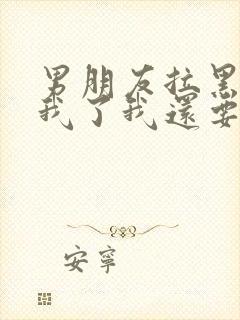 男朋友拉黑
我了我還要
安寧